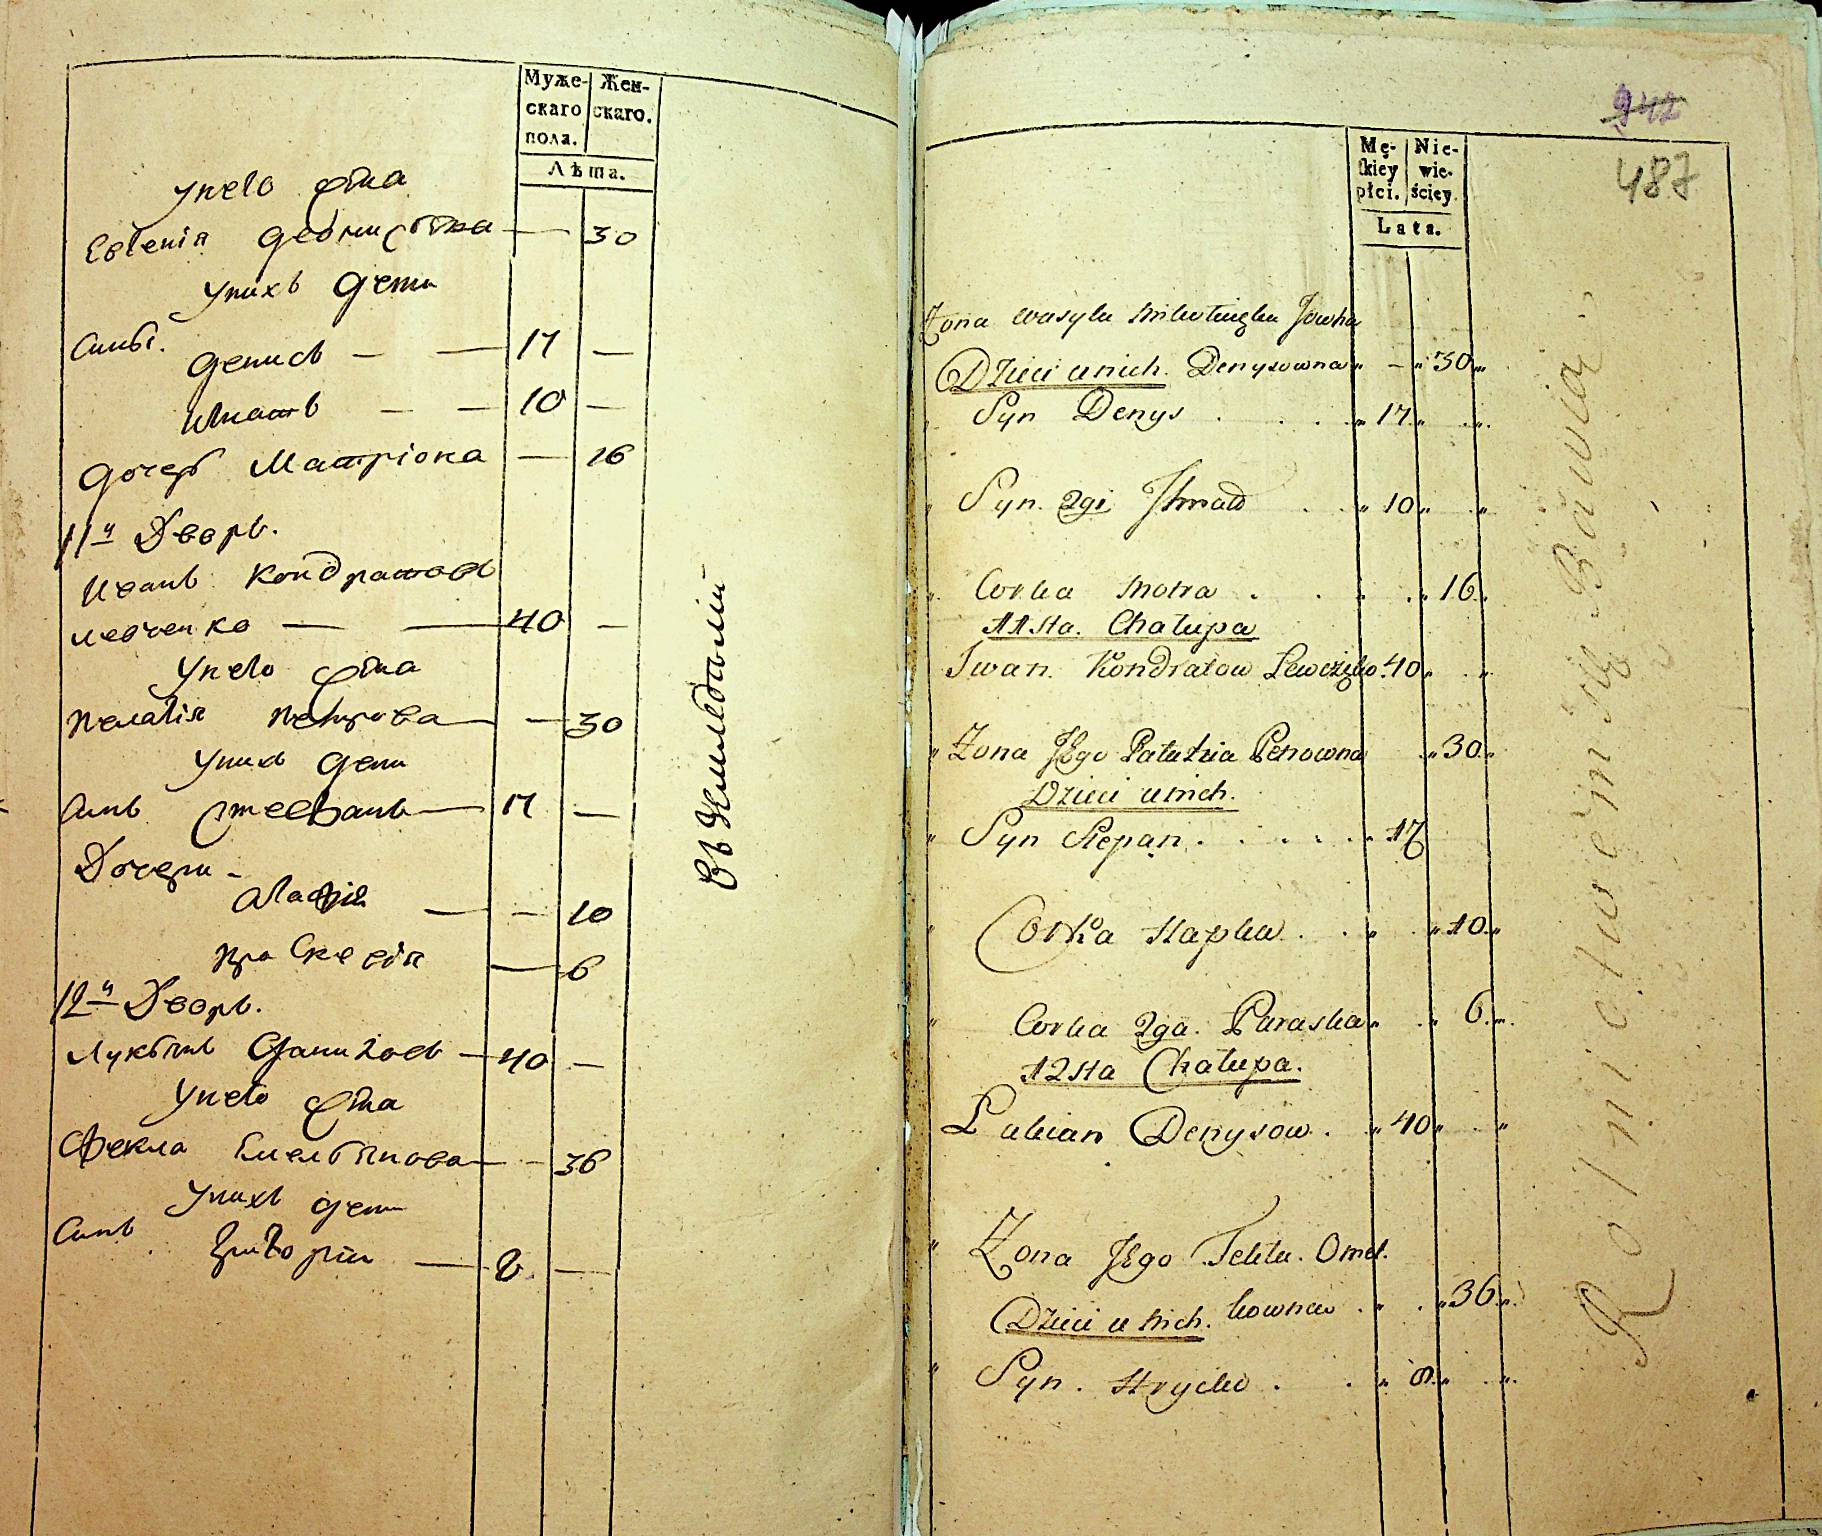 Муже-
скаго
пола.
Жен-
скаго.
Лѣта.
у него жѣна
Евгенія Денисова — 30
у нихъ дети
Сины.
Денисъ — — 17 —
Игнатъ — — 10 —
Дочерь Матріона — 16
11й Дворъ.
Иванъ Кондратовъ
Левченко — — 40 —
у него жѣна
Пелагія Петрова — — 30
у нихъ дети
Синъ Стеѳанъ — 17 —
Дочери —
Агафія — — 10
Праскевія — 6
12й Дворъ.
Лукьянъ Данилов — 40 —
у него жѣна
Фекла Емельянова — — 36
у нихъ дети
Синъ
Григорій — 8 —
въ земледѣліи
942
487
Mę-
skiey
płci.
Nie-
wie-
ściey
Lata.
Zona Wasyla Jowha
Dzieci u nich. Denysowna „ – „ 30 „
Syn Denys . . . „ 17 „ . „
Syn 2gi Ihnad . . „ 10 „ „
Corka Motra . . . . „ 16 „
11sta. Chałupa
Iwan Kondratow Lewczęko. 40 „ . „
„ Zona Jego Pałachia Petrowna „ 30 „
Dzieci u nich.
„ Syn Stepan . . . . . „ 17
„ Corka Hapka . . „ . „ 10 „
„ Corka 2ga. Paraska „ . „ 6 „
12sta Chałupa.
Łukian Denysow . „ 40 „ . „
„ Zona Jego Tekla. Omel.
Dzieci u nich. kownaw . „ . „ 36 „
„ Syn. Hrycko . . „ 8 „ . „
Rolnictwem się Bawią.